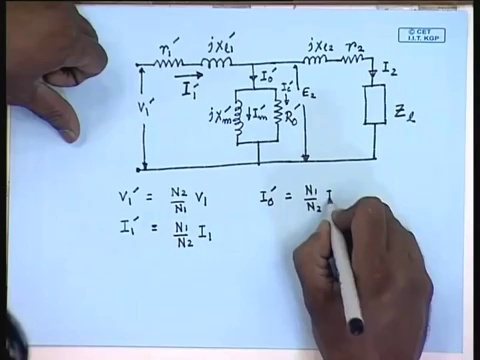 © CET
I.I.T. KGP
r₁′ jXl₁′ jXl₂ r₂
I₁′ I₀′ I₂
V₁′ jXm′ Im′ Ii′ R₀′ E₂ Zl
V₁′ = N₂/N₁ V₁ I₀′ = N₁/N₂ I
I₁′ = N₁/N₂ I₁